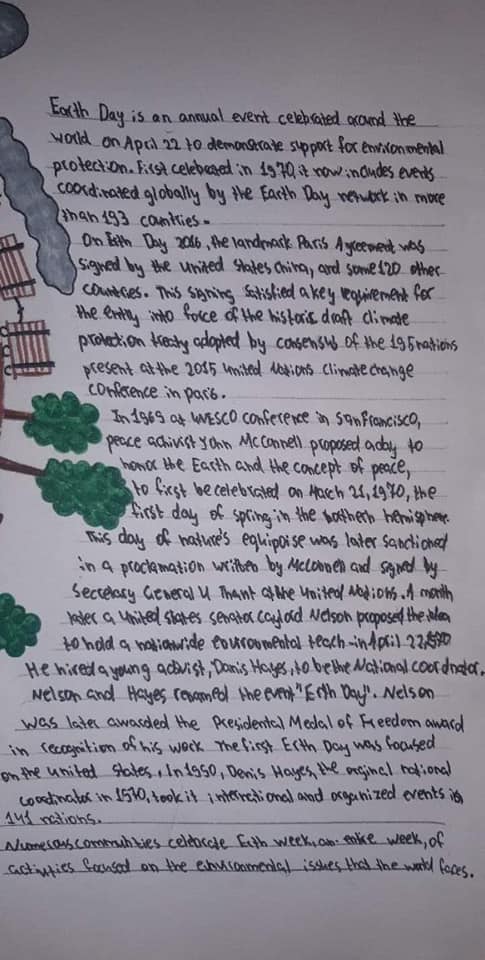 Earth Day is an annual event celebrated around the
world on April 22 to demonstrate support for environmental
protection. First celebrated in 1970, it now includes events
coordinated globally by the Earth Day network in more
than 193 countries.
On Eath Day 2016, the landmark Paris Agreement was
signed by the united states China, and some 120 other
countries. This signing satisfied a key requirement for
the entry into force of the historic draft climate
protection treaty adopted by consensus of the 195 nations
present at the 2015 united Nations climate change
conference in paris.
In 1969 at UNESCO conference in San Francisco,
peace activist John McConnell proposed a day to
honor the Earth and the concept of peace,
to first be celebrated on March 21, 1970, the
first day of spring in the northern hemisphere.
This day of nature's equipoise was later sanctioned
in a proclamation written by McConnell and signed by
Secretary General U Thant of the United Nations. A month
later a United states senator Gaylord Nelson proposed the idea
to hold a nationwide environmental teach-in April 22,
He hired a young activist, Denis Hayes, to be the National coordinator.
Nelson and Hayes renamed the event "Erth Day". Nelson
was later awarded the Presidental Medal of Freedom award
in recognition of his work The first Erth Day was focused
on the united States. In 1950, Denis Hayes, the orginal national
coordinator in 1570, took it international and organized events in
141 nations.
Numerous communities celebrate Eath week, an entire week, of
activities focused on the environmental issues that the world faces.